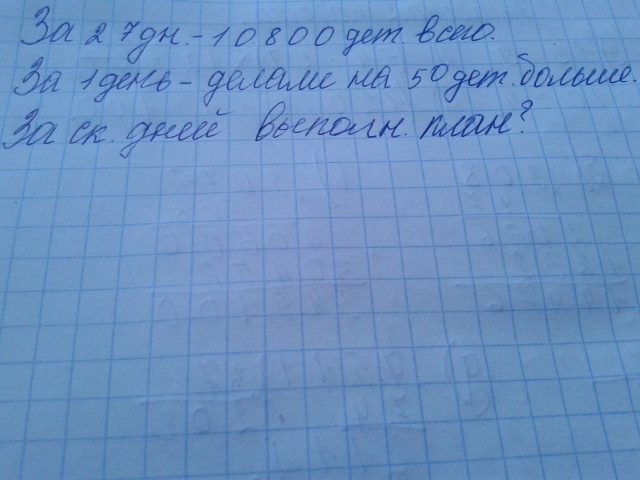 За 27 дн. - 10800 дет. всего.
За 1 день - делали на 50 дет. больше.
За ск. дней выполн. план?